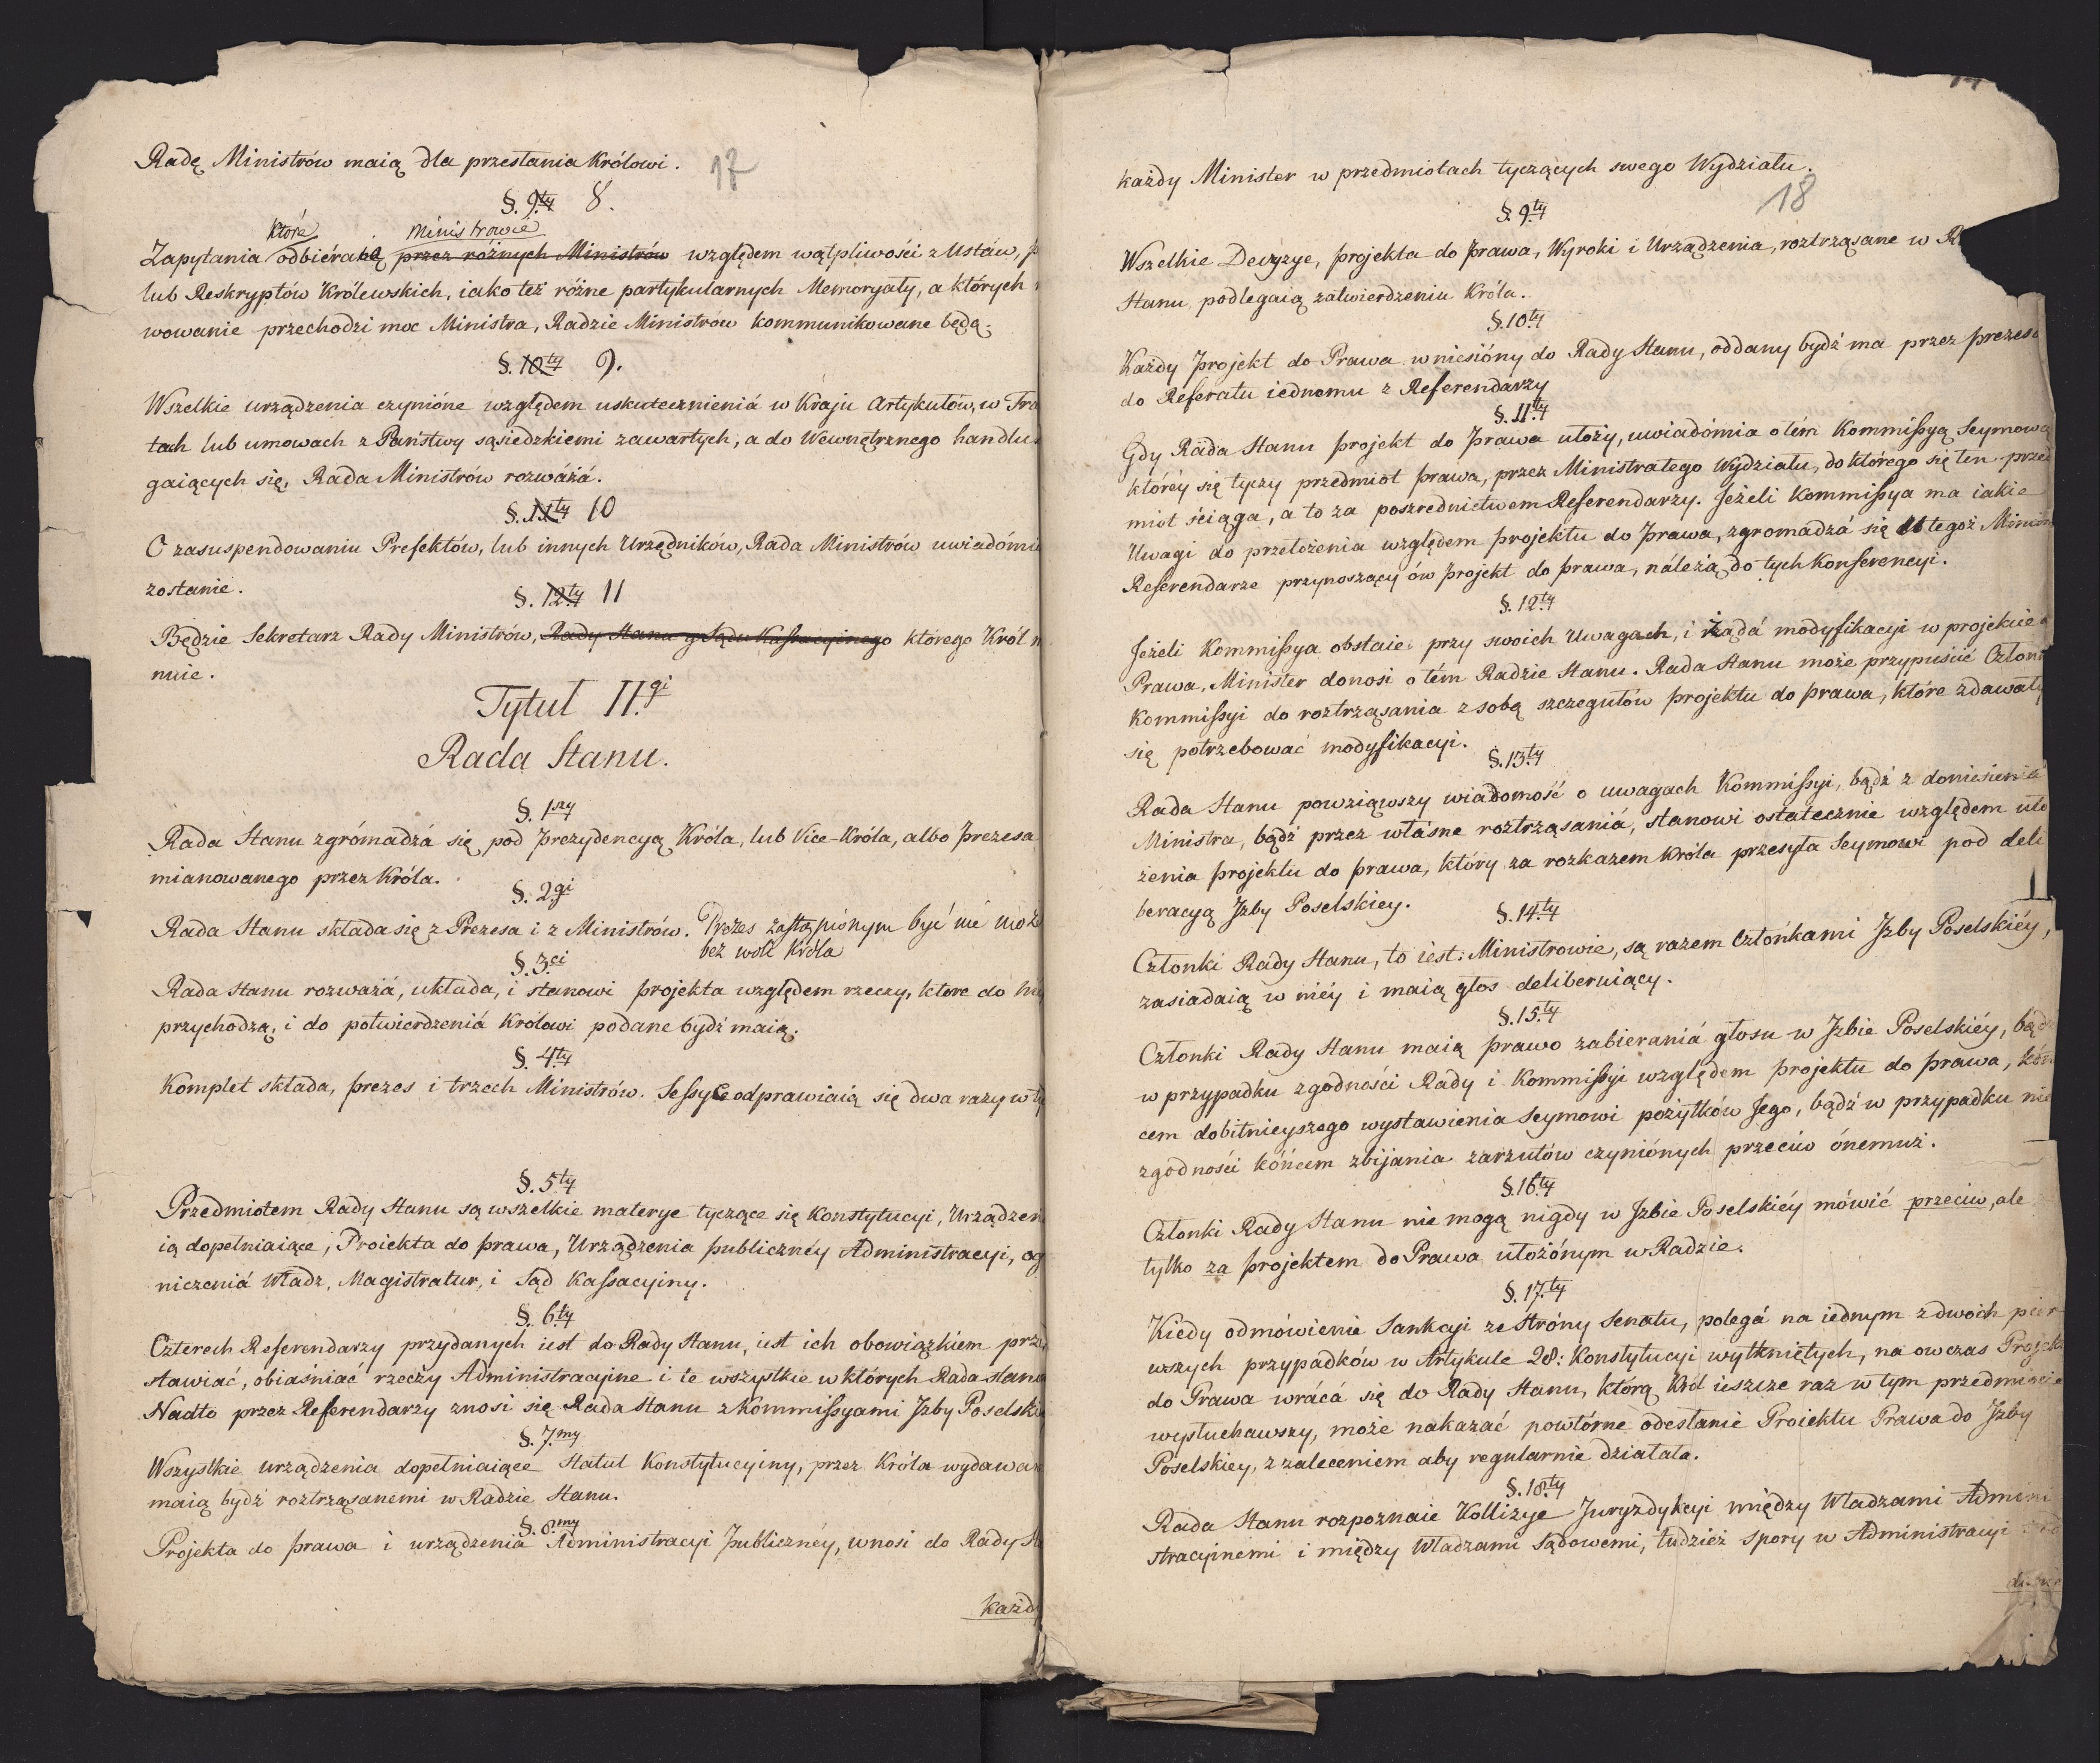 Radę Ministrów maią dla przesłania Królowi. 17
§. 9.ty 8.
które Ministrowie
Zapytania odbiéraną przez różnych Ministrów względem wątpliwości z Ustaw,
lub Reskryptów Królewskich, iako też różne partykularnych Memoryały, a których
wowanie przechodzi moc Ministra, Radzie Ministrów kommunikowane będą.
§. 10.ty 9.
Wszelkie urządzenia czynióne względem uskutecznieniá w Kraju Artykułów, w Tra
tach lub umowach z Państwy sąsiedzkiemi zawartych, a do Wewnętrznego handlu
gaiących się, Rada Ministrów rozważá.
§. 11.ty 10
O zasuspendowaniu Prefektów, lub innych Urzędników, Rada Ministrów uwiadómió
zostanie.
§. 12.ty 11
Będzie Sekretarz Rady Ministrów, Rady Stanu y Sądu Kassacyinego którego Król m
nuie.
Tytuł II.gi
Rada Stanu.
§. 1szy
Rada Stanu zgrómadzá się pod Prezydencyą Króla, lub Vice-Króla, albo Prezesa
mianowanego przez Króla.
§. 2gi
Rada Stanu składa się z Prezesa i z Ministrów. Prezes zastąpionym być nie moż
bez woli Króla
§. 3.ci
Rada Stanu rozważá, układa, i stanowi projekta względem rzeczy, które do
przychodzą, i do potwierdzeniá Królowi podane bydź maią.
§. 4.ty
Komplet składa, Prezes i trzech Ministrów. Sessye odprawiaią się dwa razy w ty
§. 5.ty
Przedmiotem Rady Stanu są wszelkie materye tyczące się Konstytucyi, Urządzen
ią dopełniaiące, Proiekta do prawa, Urządzenia publicznéy Administracyi, og
niczeniá Władz, Magistratur, i Sąd Kassacyiny.
§. 6.ty
Czterech Referendarzy przydanych iest do Rady Stanu, iest ich obowiązkiem prze
stawiać, obiaśniać rzeczy Administracyine i te wszystkie w których Rada stano
Nadto przez Referendarzy znosi się Rada Stanu z Kommissyami Jzby Poselskie
§. 7.my
Wszystkie urządzenia dopełniaiące Statut Konstytucyiny, przez Króla wydawa
maią bydź roztrząsanemi w Radzie Stanu.
§. 8.my
Projekta do prawa i urządzenia Administracyi Publicznéy, wnosi do Rady St
każdy
każdy Minister w przedmiotach tyczących swego Wydziału.
18
§. 9.ty
Wszelkie Decyzye, projekta do prawa, Wyroki i Urządzenia, roztrząsane w R
Stanu podlegaią zatwierdzeniu Króla.
§. 10.ty
Każdy Projekt do Prawa wniesióny do Rady Stanu, oddany bydź ma przez prezesa
do Referatu iednemu z Referendarzy
§. 11.ty
Gdy Rada Stanu projekt do prawa ułoży, uwiadómia o tém Kommissyą Seymową
któréy się tyczy przedmiot prawa, przez Ministra tego Wydziału, do którego się ten przed
miot ściąga, a to za poszrednictwem Referendarzy. Jeżeli Kommissya ma iakie
Uwagi do przełożenia względem projektu do prawa, zgromadzá się u tegoż Ministra
Referendarze przynoszący ów projekt do prawa, náleżą do tych Konferencyi.
§. 12.ty
Jeżeli Kommissya obstaie przy swoich Uwagach, i żądá modyfikacyi w projekcie d
Prawa, Minister donosi o tém Radzie Stanu. Rada Stanu może przypuścić Człon
Kommissyi do roztrząsania z sobą szczegułów projektu do prawa, które zdawały
się potrzebować modyfikacyi.
§. 13.ty
Rada Stanu powziąwszy wiadomość o uwagach Kommissyi, bądź z doniesienia
Ministra, bądź przez własne roztrząsaniá, stanowi ostatecznie względem uło
żenia projektu do prawa, który za rozkazem Króla przesyła Seymowi pod deli
beracyą Jzby Poselskiey.
§. 14.ty
Członki Rady Stanu, to iest: Ministrowie, są razem Członkami Jzby Poselskiéy,
zasiadaią w niéy i maią głos deliberuiący.
§. 15.ty
Członki Rady Stanu maią prawo zabieraniá głosu w Jzbie Poselskiéy, bądź
w przypadku zgodności Rady i Kommissyi względem projektu do prawa, kóń
cem dobitnieyszego wystawienia Seymowi pożytków Jego, bądź w przypadku nie
zgodności kóńcem zbijania zarzutów czyniónych przeciw ónemuż.
§. 16.ty
Członki Rady Stanu nie mogą nigdy w Jzbie Poselskiéy mówić przeciw, ale
tylko za projektem do Prawa ułożónym w Radzie.
§. 17.ty
Kiedy odmówienie Sankcyi ze stróny Senatu, polegá na iednym z dwoch pier-
wszych przypadków w Artykule 28: Konstytucyi wytkniętych, na owczas Projekt
do Prawa wrácá się do Rady Stanu, którą Król ieszcze raz w tym przedmiocie
wysłuchawszy, może nakazać powtórne odesłanie Proiektu Prawa do Jzby
Poselskiey, z zaleceniem aby regularnie działała.
§. 18.ty
Rada Stanu rozpoznaie Kollizye Juryzdykcyi między Władzami Admini
stracyinemi i między Władzami Sądowemi, tudzież spory w Administracyi